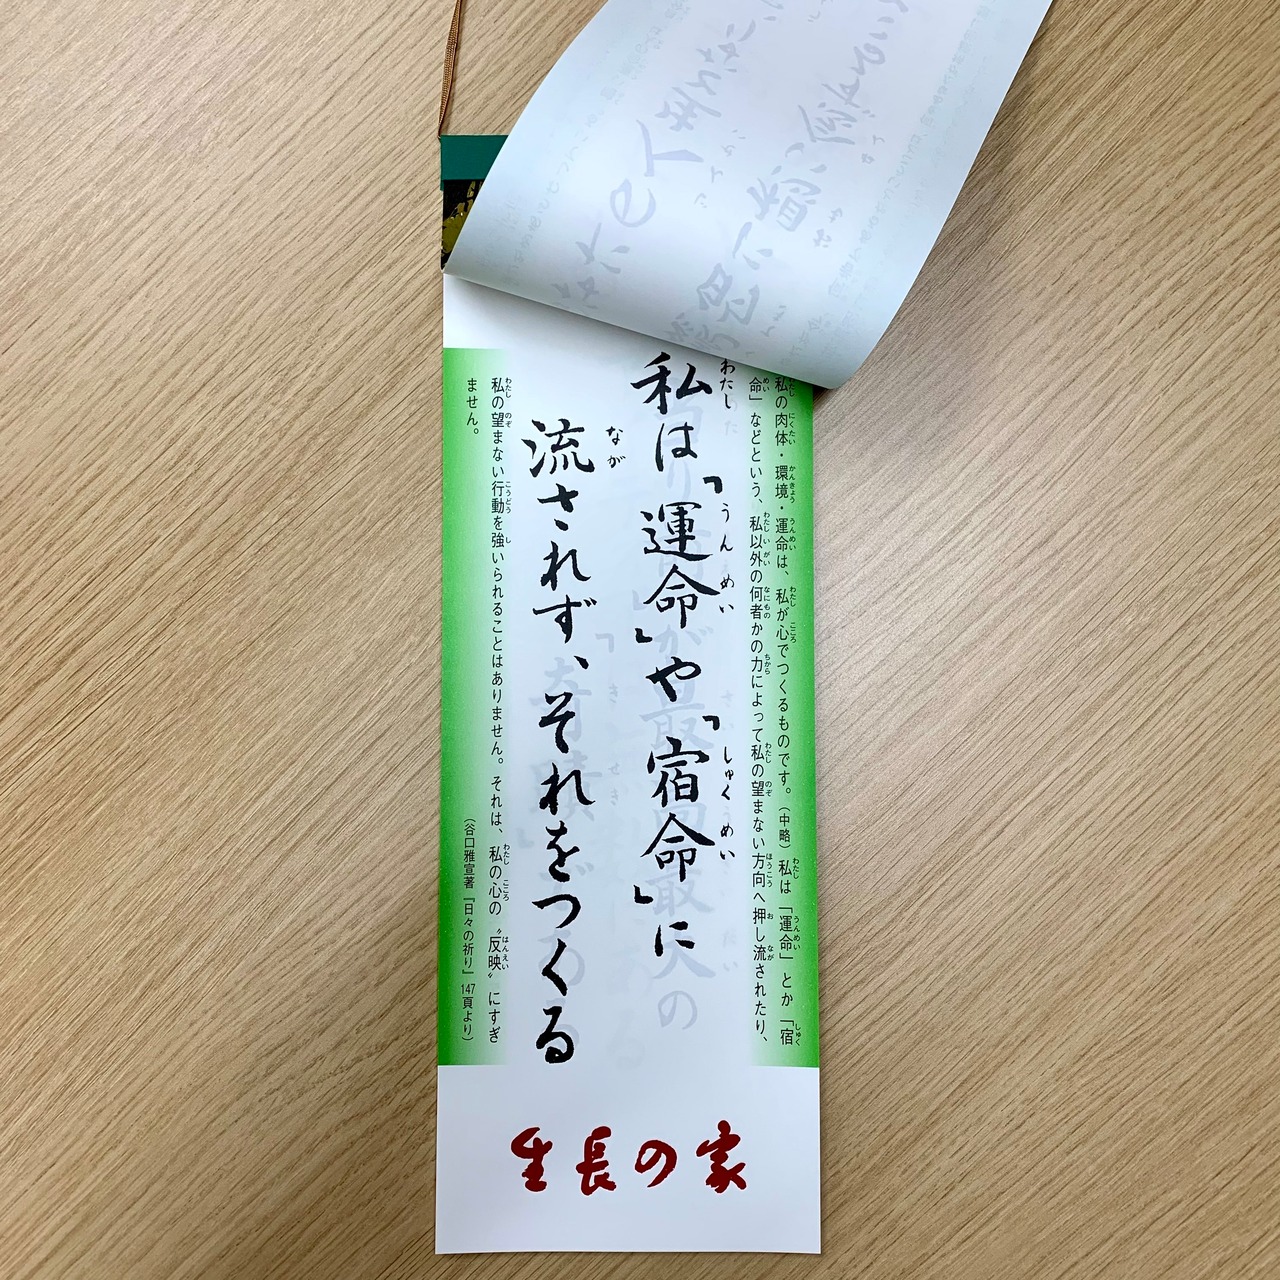 私の肉体・環境・運命は、私が心でつくるものです。（中略）私は「運命」とか「宿
命」などという、私以外の何者かの力によって私の望まない方向へ押し流されたり、
私は「運命」や「宿命」に
流されず、それをつくる
私の望まない行動を強いられることはありません。それは、私の心の〝反映〟にすぎ
ません。
（谷口雅宣著『日々の祈り』147頁より）
生長の家